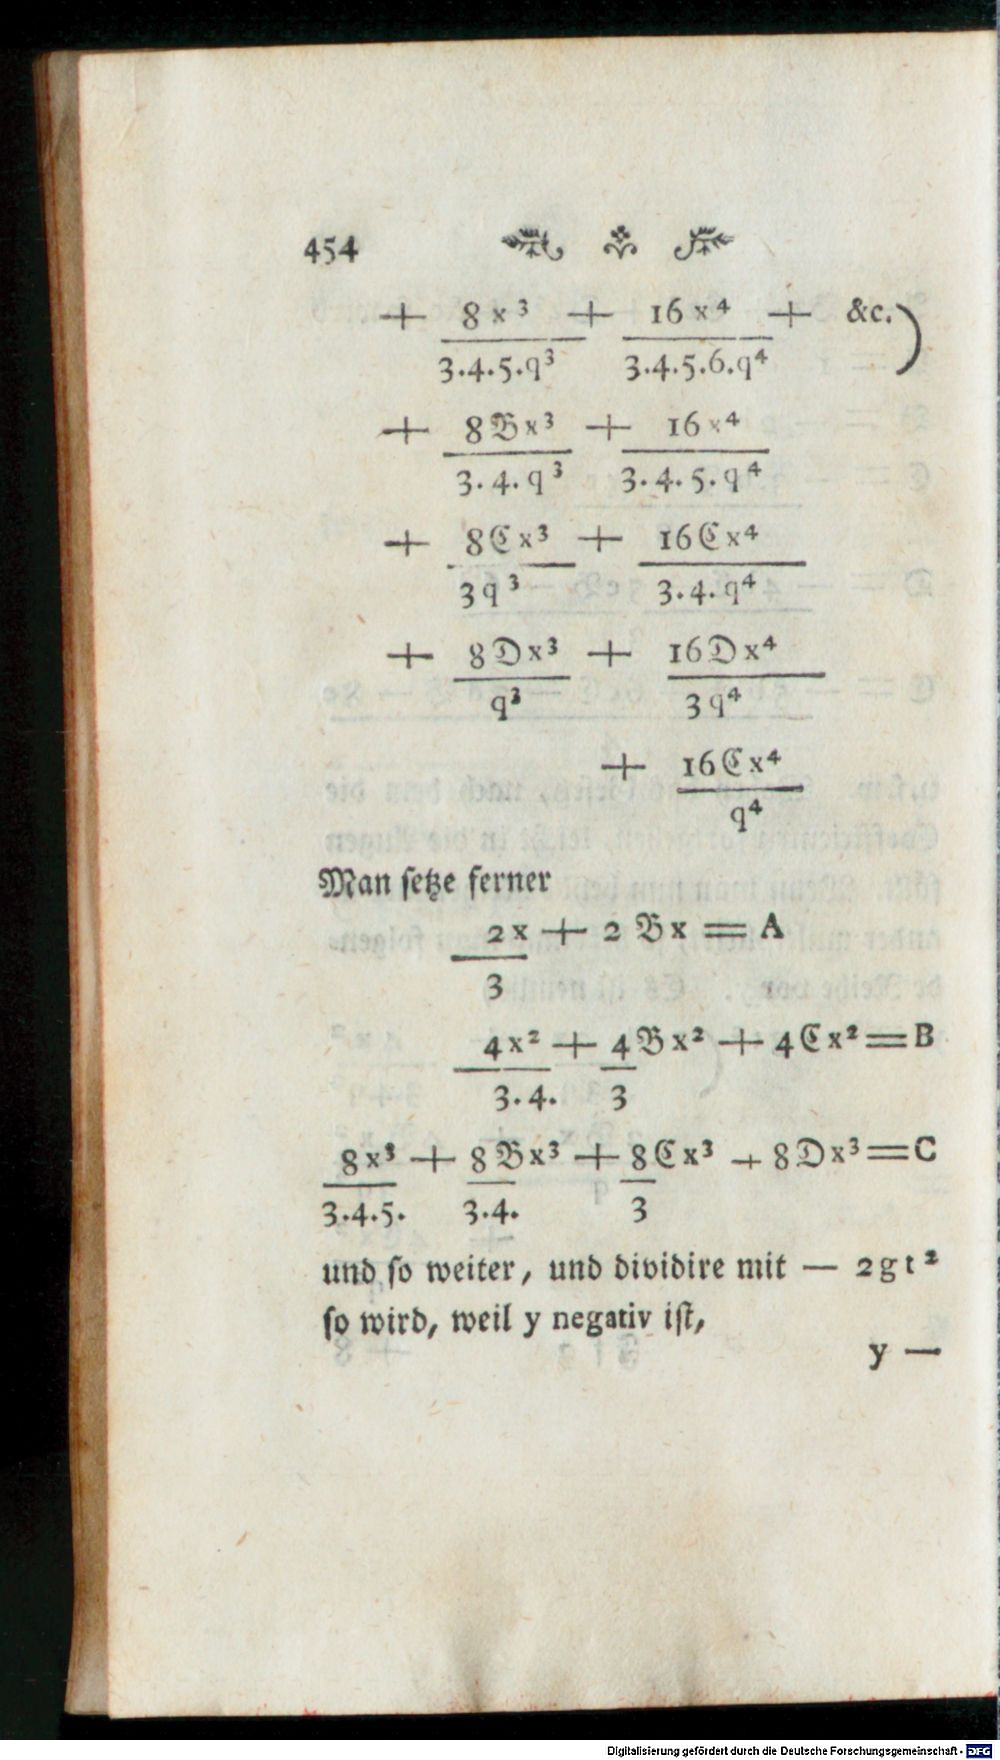 454
+ 8x³ + 16x⁴ + &c.)
3.4.5.q³ 3.4.5.6.q⁴
+ 8𝔅x³ + 16x⁴
3.4.q³ 3.4.5.q⁴
+ 8ℭx³ + 16ℭx⁴
3q³ 3.4.q⁴
+ 8𝔇x³ + 16𝔇x⁴
q³ 3q⁴
+ 16ℭx⁴
q⁴
Man ſetze ferner
2x + 2𝔅x = A
3
4x² + 4𝔅x² + 4ℭx² = B
3.4. 3
8x³ + 8𝔅x³ + 8ℭx³ + 8𝔇x³ = C
3.4.5. 3.4. 3
und ſo weiter, und dividire mit — 2gt²
ſo wird, weil y negativ iſt,
y —
Digitalisierung gefördert durch die Deutsche Forschungsgemeinschaft - DFG